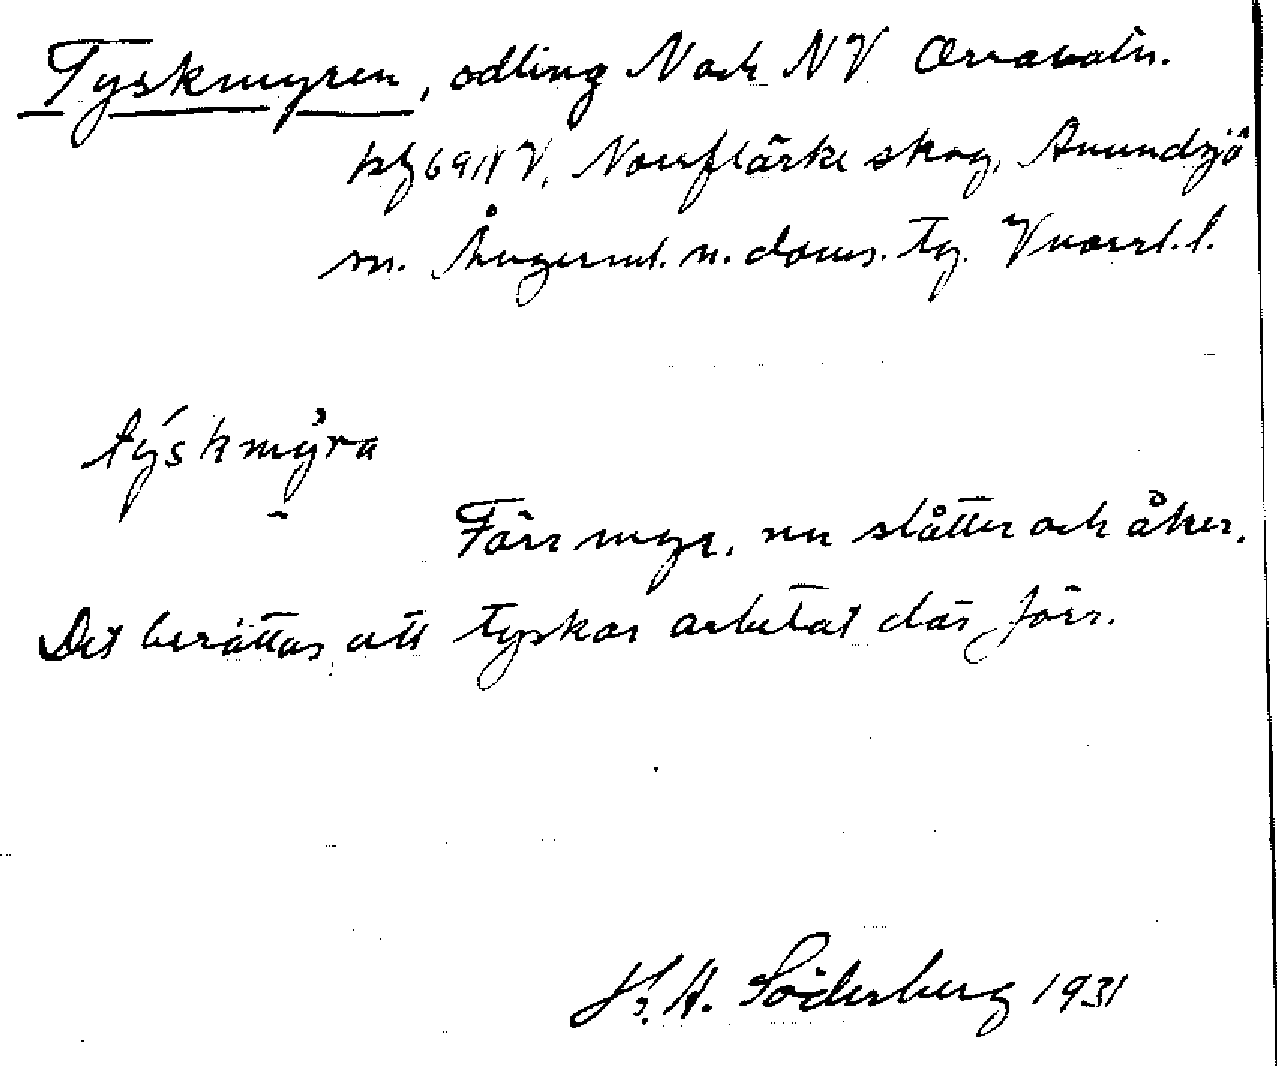 Tyskmyren, odling N och NV Orravatn.
kbl 69 NV, Norrflärke skog, Anundsjö
sn. Ångerml. n. doms. tg. Vnorrl. l.
týskmy̆ra
Förr myr, nu slåtter och åker.
Det berättas att tyskar arbetat där förr.
K. H. Söderberg 1931